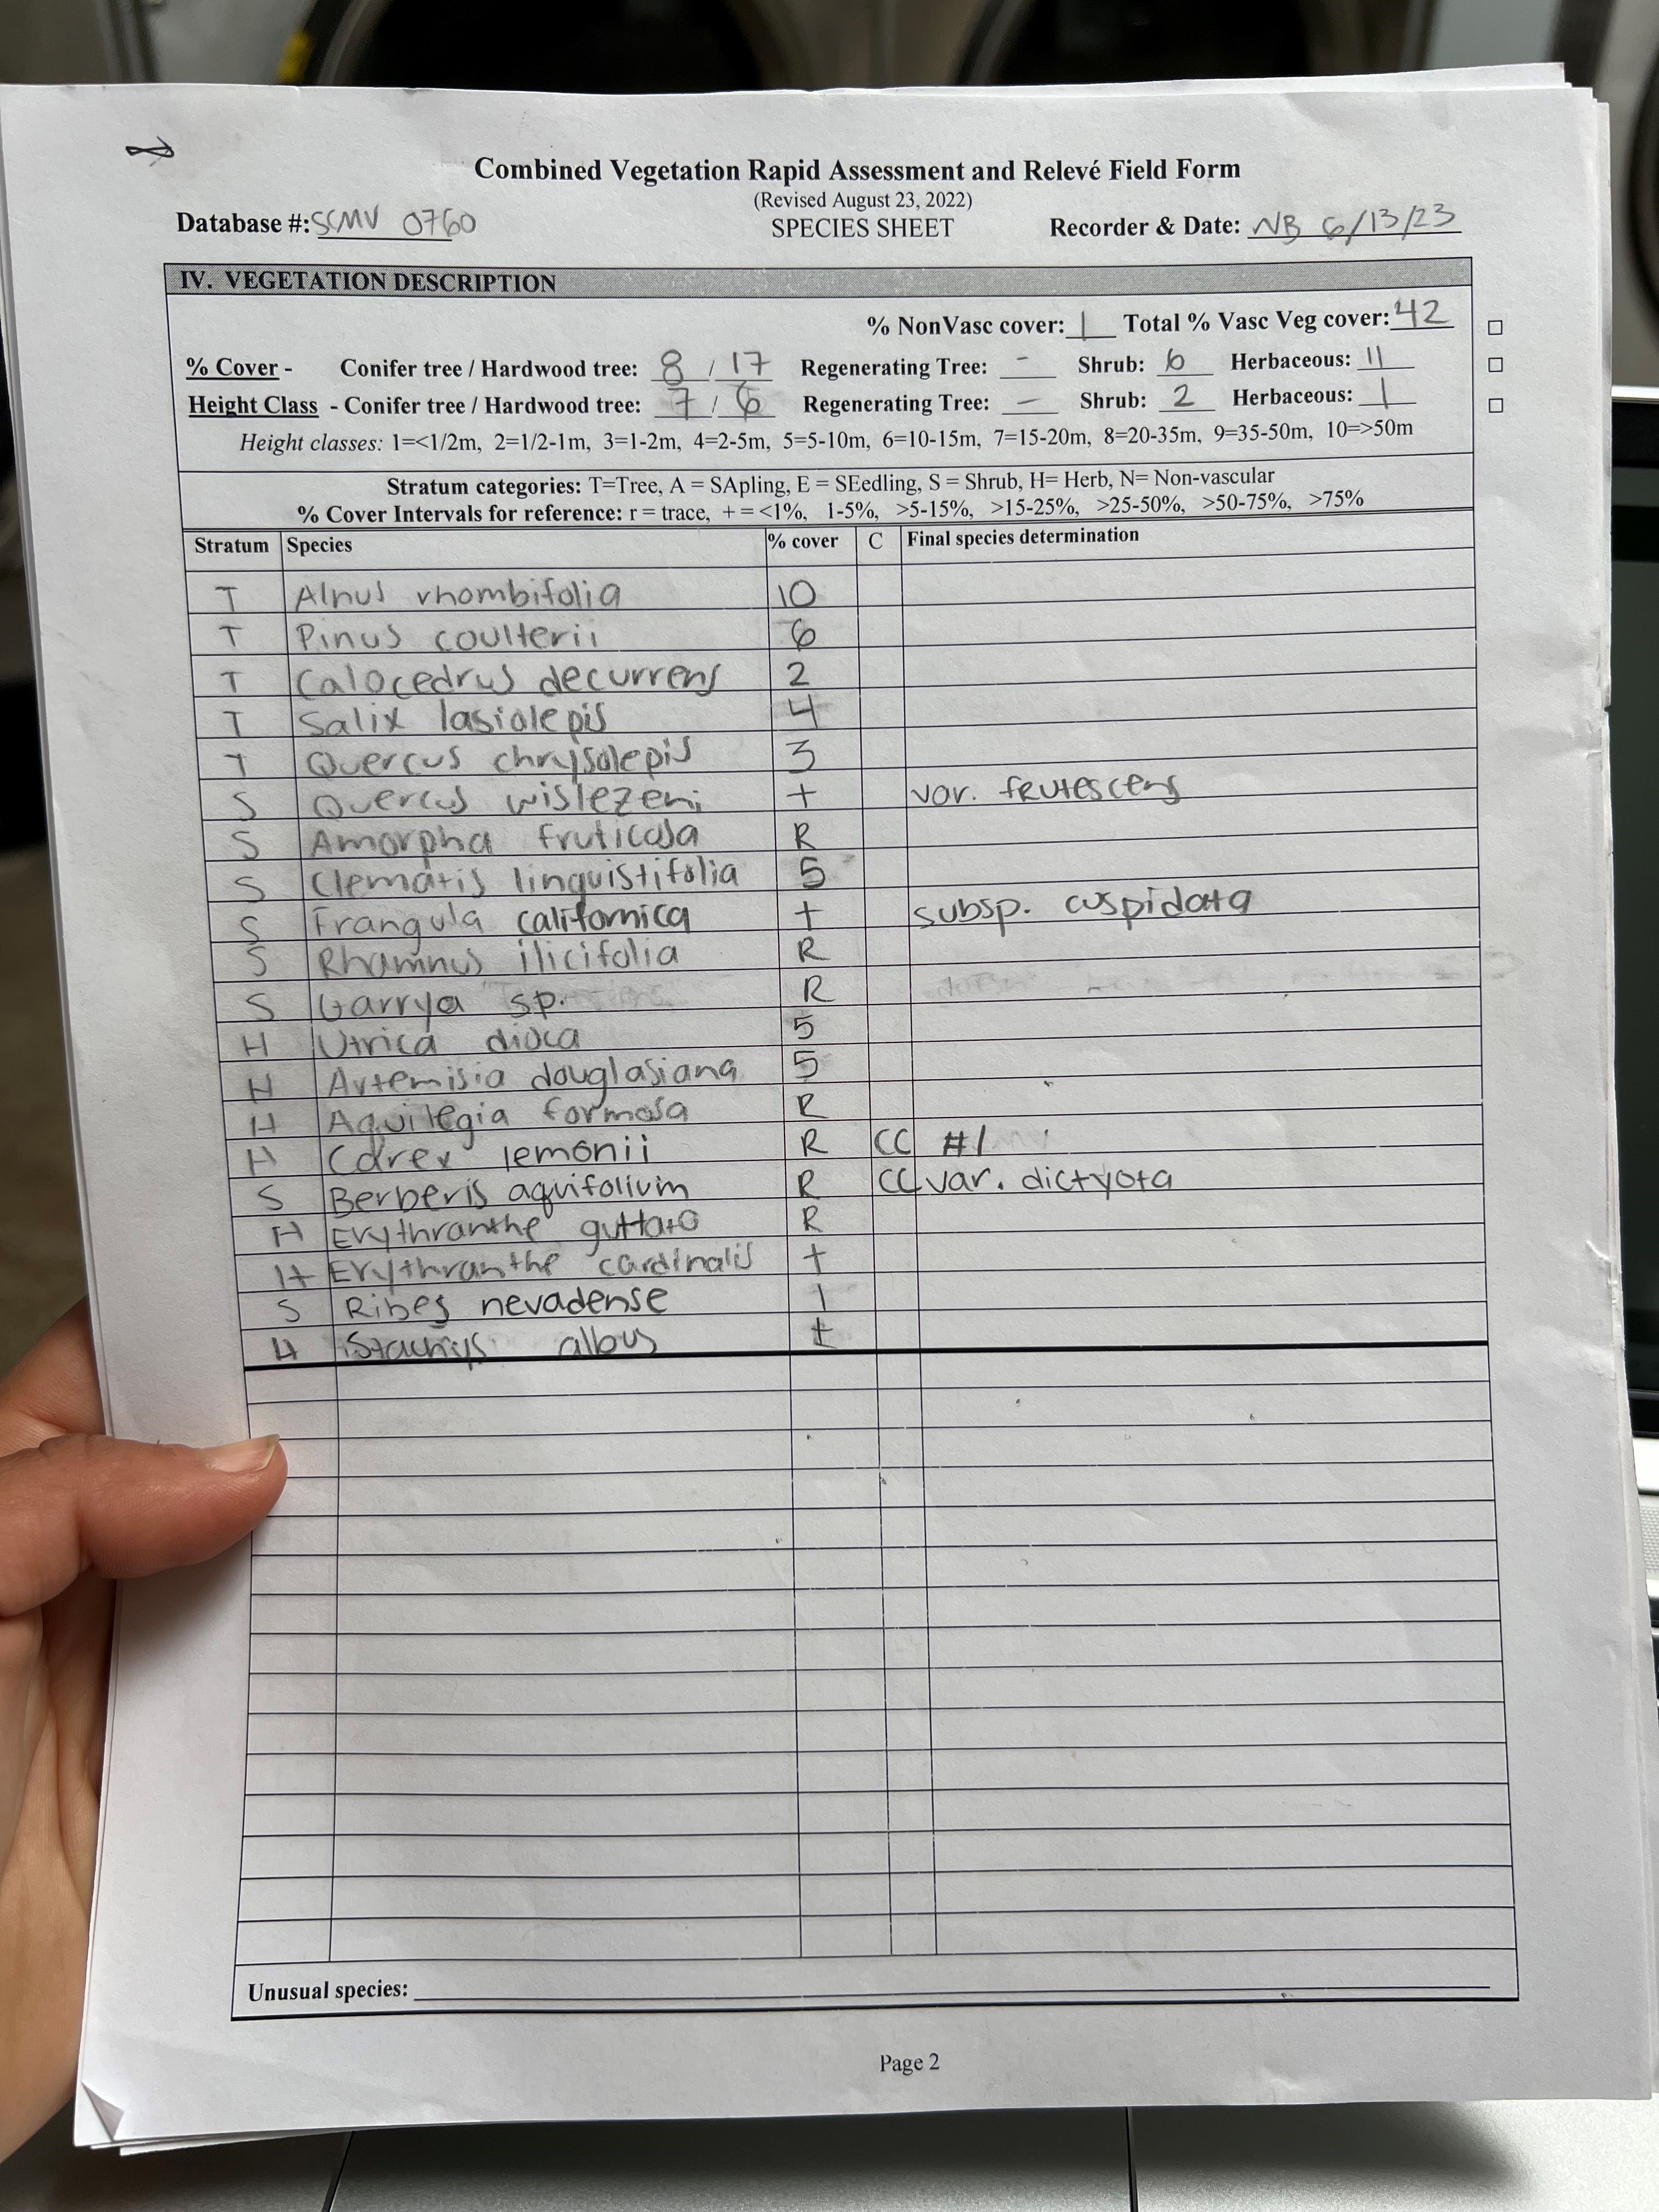 Combined Vegetation Rapid Assessment and Relevé Field Form
(Revised August 23, 2022)
Database #: SCMV 0760 SPECIES SHEET Recorder & Date: NB 6/13/23
IV. VEGETATION DESCRIPTION
% NonVasc cover: 1 Total % Vasc Veg cover: 42
% Cover - Conifer tree / Hardwood tree: 8 / 17 Regenerating Tree: - Shrub: 6 Herbaceous: 11
Height Class - Conifer tree / Hardwood tree: 7 / 6 Regenerating Tree: - Shrub: 2 Herbaceous: 1
Height classes: 1=<1/2m, 2=1/2-1m, 3=1-2m, 4=2-5m, 5=5-10m, 6=10-15m, 7=15-20m, 8=20-35m, 9=35-50m, 10=>50m
Stratum categories: T=Tree, A = SApling, E = SEedling, S = Shrub, H= Herb, N= Non-vascular
% Cover Intervals for reference: r = trace, + = <1%, 1-5%, >5-15%, >15-25%, >25-50%, >50-75%, >75%
Stratum Species % cover C Final species determination
T Alnus rhombifolia 10
T Pinus coulterii 6
T Calocedrus decurrens 2
T Salix lasiolepis 4
T Quercus chrysolepis 3
S Quercus wislezeni + var. frutescens
S Amorpha fruticosa R
S Clematis linguistifolia 5
S Frangula californica + subsp. cuspidata
S Rhamnus ilicifolia R
S Garrya sp. R
H Utrica dioca 5
H Artemisia douglasiana 5
H Aquilegia formosa R
H Carex lemonii R CC #1
S Berberis aquifolium R CC var. dictyota
H Erythranthe guttata R
H Erythranthe cardinalis +
S Ribes nevadense 1
H Stachys albus +
Unusual species:
Page 2